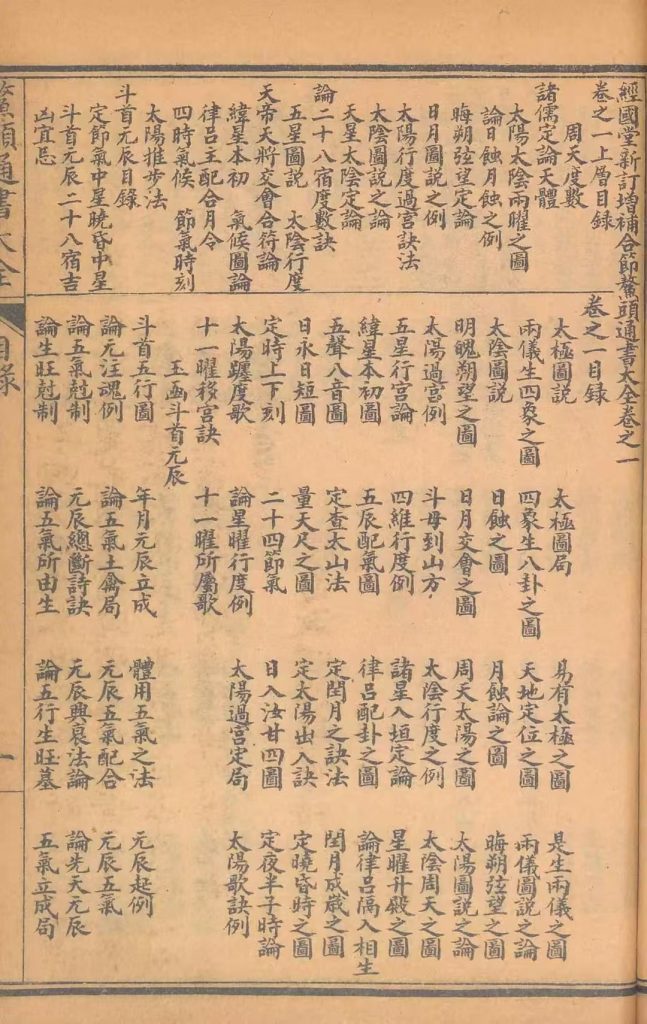 經國堂新訂增補合節鰲頭通書大全卷之一
卷之一上層目錄
周天度數
諸儒定論天體
太陽太陰兩曜之圖
論日蝕月蝕之例
晦朔弦望定論
日月圖說之例
太陽行度過宮訣法
太陰圖說之論
天星太陰定論
論二十八宿度數訣
五星圖說 太陰行度
天帝天將交會合符論
緯星本初 氣候圖論
律呂主配合月令
四時氣候 節氣時刻
太陽推步法
斗首元辰目錄
定節氣中星曉昏中星
斗首元辰二十八宿吉
凶宜忌
卷之一目錄
太極圖說 太極圖局 易有太極之圖 是生兩儀之圖
兩儀生四象之圖 四象生八卦之圖 天地定位之圖 兩儀圖說之論
太陰圖說 日蝕之圖 月蝕論之圖 晦朔弦望之圖
明魄朔望之圖 日月交會之圖 周天太陽之圖 太陽圖說之論
太陽過宮例 斗母到山方 太陰行度之例 太陰周天之圖
五星行宮論 四維行度例 諸星入垣定論 星曜升殿之圖
緯星本初圖 五辰配氣圖 律呂配卦之圖 論律呂隔入相生
五聲八音圖 定查太山法 定閏月之訣法 閏月成歲之圖
日永日短圖 量天尺之圖 定太陽出入訣 定曉昏時之圖
定時上下刻 二十四節氣 日入汝廿四圖 定夜半子時論
太陽躔度歌 論星曜行度例 太陽過宮定局 太陽歌訣例
十一曜移宮訣 十一曜所屬歌
玉函斗首元辰
斗首五行圖 年月元辰立成 體用五氣之法 元辰起例
論元注魂例 論五氣土禽局 元辰五氣配合 元辰五氣
論五氣尅制 元辰總斷詩訣 元辰興衰法論 論先天元辰
論生旺尅制 論五氣所由生 論五行生旺墓 五氣立成局
鰲頭通書大全
目錄
一